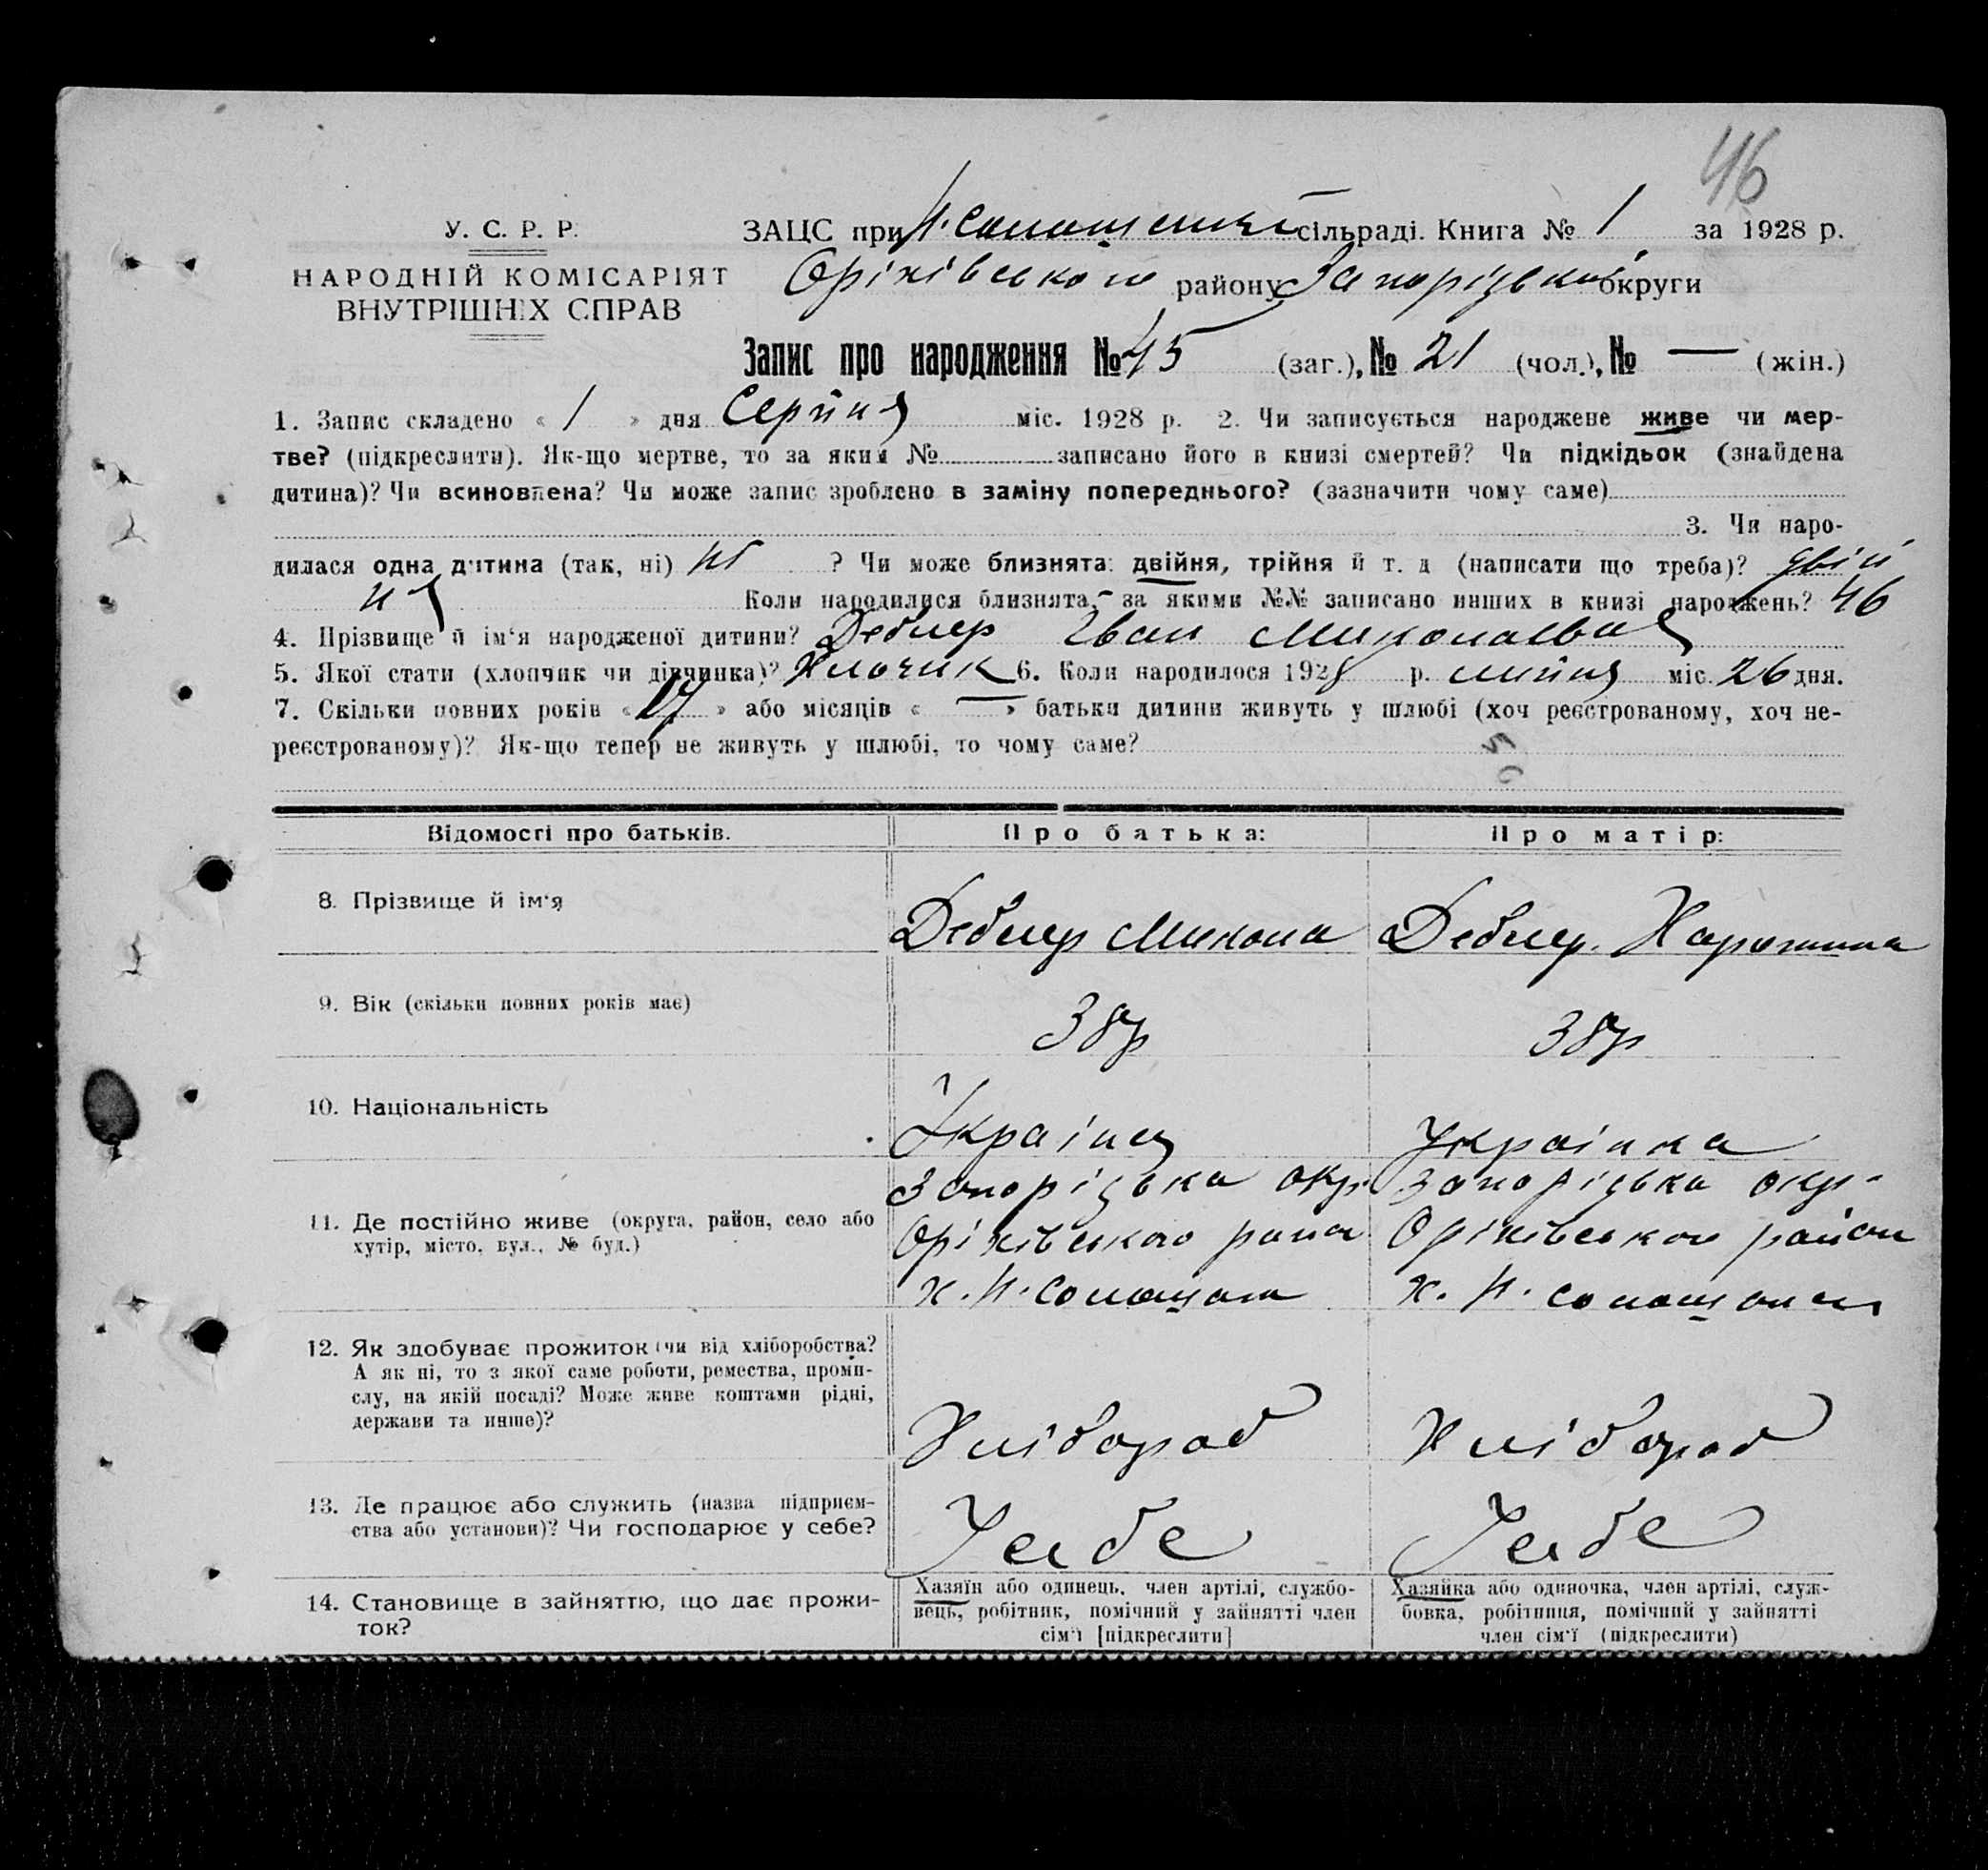 46
У. С. Р. Р.
НАРОДНІЙ КОМІСАРІЯТ
ВНУТРІШНІХ СПРАВ
ЗАЦС при сільраді. Книга № 1 за 1928 р.
Оріхівського району Запорізької округи
Запис про народження № 45 (заг.), № 21 (чол.), № — (жін.)
1. Запис складено « 1 » дня Серпня міс. 1928 р. 2. Чи записується народжене живе чи мер-
тве? (підкреслити). Як-що мертве, то за яким № записано його в книзі смертей? Чи підкідьок (знайдена
дитина)? Чи всиновлена? Чи може запис зроблено в заміну попереднього? (зазначити чому саме)
3. Чи наро-
дилася одна дитина (так, ні) ні ? Чи може близнята: двійня, трійня й т. д (написати що треба)? двій
ня Коли народилися близнята,- за якими №№ записано инших в книзі народжень? 46
4. Прізвище й ім‘я народженої дитини? Деблер Іван Миколаєва
5. Якої стати (хлопчик чи дівчинка)? Хлочик 6. Коли народилося 1928 р. липня міс. 26 дня.
7. Скільки повних років « 17 » або місяців « — » батьки дитини живуть у шлюбі (хоч реєстрованому, хоч не-
реєстрованому)? Як-що тепер не живуть у шлюбі, то чому саме?
Відомості про батьків. Про батька: Про матір:
8. Прізвище й ім‘я Деблер Микола Деблер.
9. Вік (скільки повних років має) 38р 38р
10. Національність Украінец Украінка
11. Де постійно живе (округа, район, село або
хутір, місто, вул., № буд.)
Запорізька окр. Запорізька окр.
Оріхівського Оріхівського район
12. Як здобуває прожиток (чи від хліборобства?
А як ні, то з якої саме роботи, ремества, проми-
слу, на якій посаді? Може живе коштами рідні,
держави та инше)?
Хлібороб Хлібороб
13. Де працює або служить (назва підприєм-
ства або установи)? Чи господарює у себе?
У себе У себе
14. Становище в зайняттю, що дає прожи-
ток?
Хазяїн або одинець, член артілі, службо-
вець, робітник, помічний у зайнятті член
сім‘ї [підкреслити]
Хазяйка або одиночка, член артілі, служ-
бовка, робітниця, помічний у зайнятті
член сім‘ї (підкреслити)